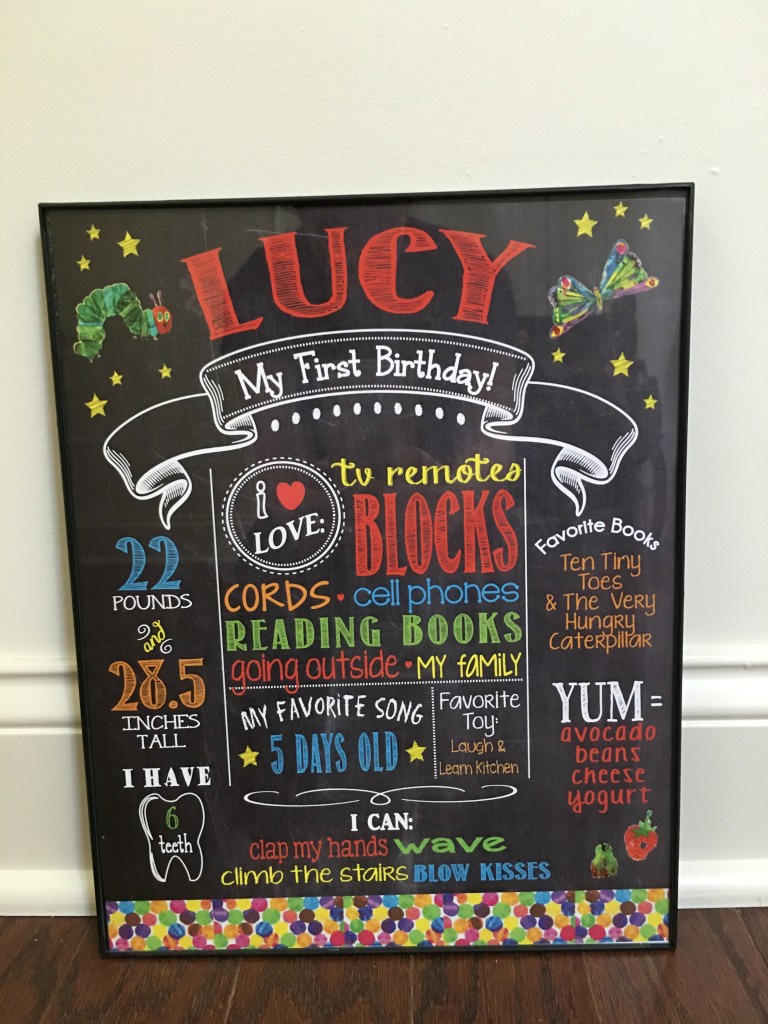 LUCY
My First Birthday!
i ♥
LOVE:
tv remotes
BLOCKS
CORDS • cell phones
READING BOOKS
going outside • MY FAMILY
22
POUNDS
and
28.5
INCHES
TALL
I HAVE
6
teeth
MY FAVORITE SONG
5 DAYS OLD
Favorite
Toy:
Laugh &
Learn Kitchen
Favorite Books
Ten Tiny
Toes
& The Very
Hungry
Caterpillar
YUM =
avocado
beans
cheese
yogurt
I CAN:
clap my hands wave
climb the stairs BLOW KISSES